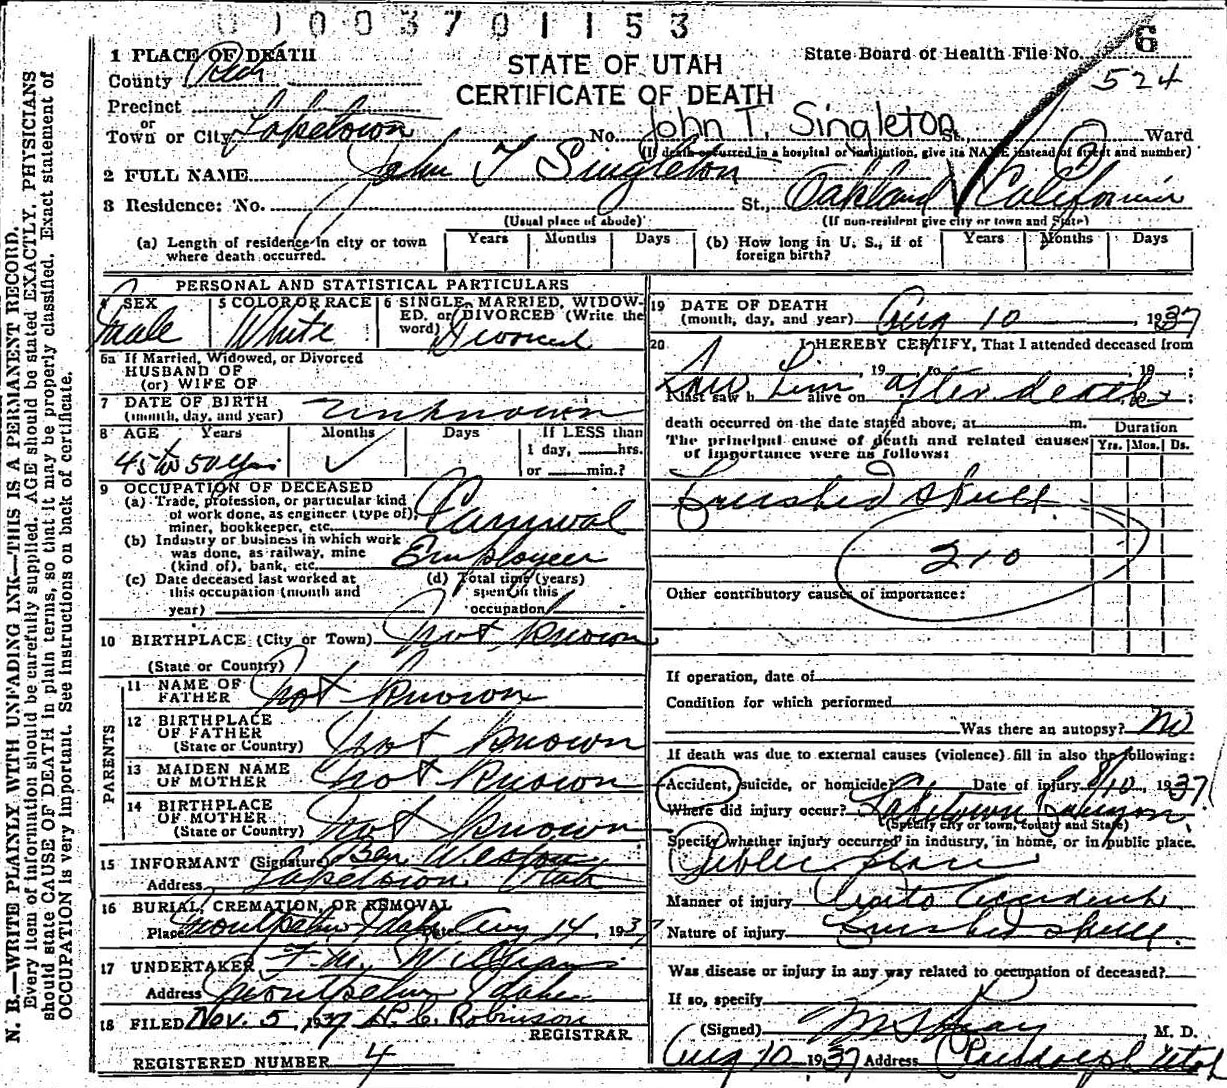 0 1 0 0 3 7 0 1 1 5 3
6
524
STATE OF UTAH
CERTIFICATE OF DEATH
State Board of Health File No.
1 PLACE OF DEATH
County Rich
Precinct
or
Town or City Laketown No. John T. Singleton St. Ward
(If death occurred in a hospital or institution, give its NAME instead of street and number)
2 FULL NAME John T Singleton
3 Residence: No. St., Oakland California
(Usual place of abode) (If non-resident give city or town and State)
(a) Length of residence in city or town where death occurred. Years Months Days
(b) How long in U. S., if of foreign birth? Years Months Days
PERSONAL AND STATISTICAL PARTICULARS
4 SEX Male
5 COLOR OR RACE White
6 SINGLE, MARRIED, WIDOWED, or DIVORCED (Write the word) Divorced
6a If Married, Widowed, or Divorced
HUSBAND OF
(or) WIFE OF
7 DATE OF BIRTH
(month, day, and year) Unknown
8 AGE Years Months Days If LESS than
1 day, hrs.
or min.?
45 to 50 yrs
9 OCCUPATION OF DECEASED
(a) Trade, profession, or particular kind
of work done, as engineer (type of),
miner, bookkeeper, etc. Carnival
(b) Industry or business in which work
was done, as railway, mine
(kind of), bank, etc. Employeer
(c) Date deceased last worked at
this occupation (month and
year)
(d) Total time (years)
spent in this
occupation
10 BIRTHPLACE (City or Town) Not Known
(State or Country)
PARENTS
11 NAME OF
FATHER Not Known
12 BIRTHPLACE
OF FATHER
(State or Country) Not Known
13 MAIDEN NAME
OF MOTHER Not Known
14 BIRTHPLACE
OF MOTHER
(State or Country) Not Known
15 INFORMANT (Signature) Ben Weston
Address Laketown Utah
16 BURIAL, CREMATION, OR REMOVAL
Place Montpelier Idaho Date Aug 14, 1937
17 UNDERTAKER F. M. Williams
Address Montpelier Idaho
18 FILED Nov. 5, 1937 H. C. Robinson
REGISTRAR
REGISTERED NUMBER 4
19 DATE OF DEATH
(month, day, and year) Aug 10, 1937
20 I HEREBY CERTIFY, That I attended deceased from
, 19 to , 19 ;
I last saw h alive on , 19 ;
I Saw him after death
death occurred on the date stated above, at m.
The principal cause of death and related causes
of importance were as follows:
Duration
Yrs. Mos. Ds.
Crushed skull.
210
Other contributory causes of importance:
If operation, date of
Condition for which performed
Was there an autopsy? No
If death was due to external causes (violence) fill in also the following:
Accident, suicide, or homicide? Date of injury 8/10, 1937
Where did injury occur? Laketown Canyon
(Specify city or town, county and State)
Specify whether injury occurred in industry, in home, or in public place.
Public place
Manner of injury Auto Accident
Nature of injury Crushed skull.
Was disease or injury in any way related to occupation of deceased?
If so, specify
(Signed) M. D.
Aug 10 1937 Address Randolph Utah
N. B.—WRITE PLAINLY WITH UNFADING INK—THIS IS A PERMANENT RECORD.
Every item of information should be carefully supplied. AGE should be stated EXACTLY. PHYSICIANS
should state CAUSE OF DEATH in plain terms, so that it may be properly classified. Exact statement of
OCCUPATION is very important. See instructions on back of certificate.